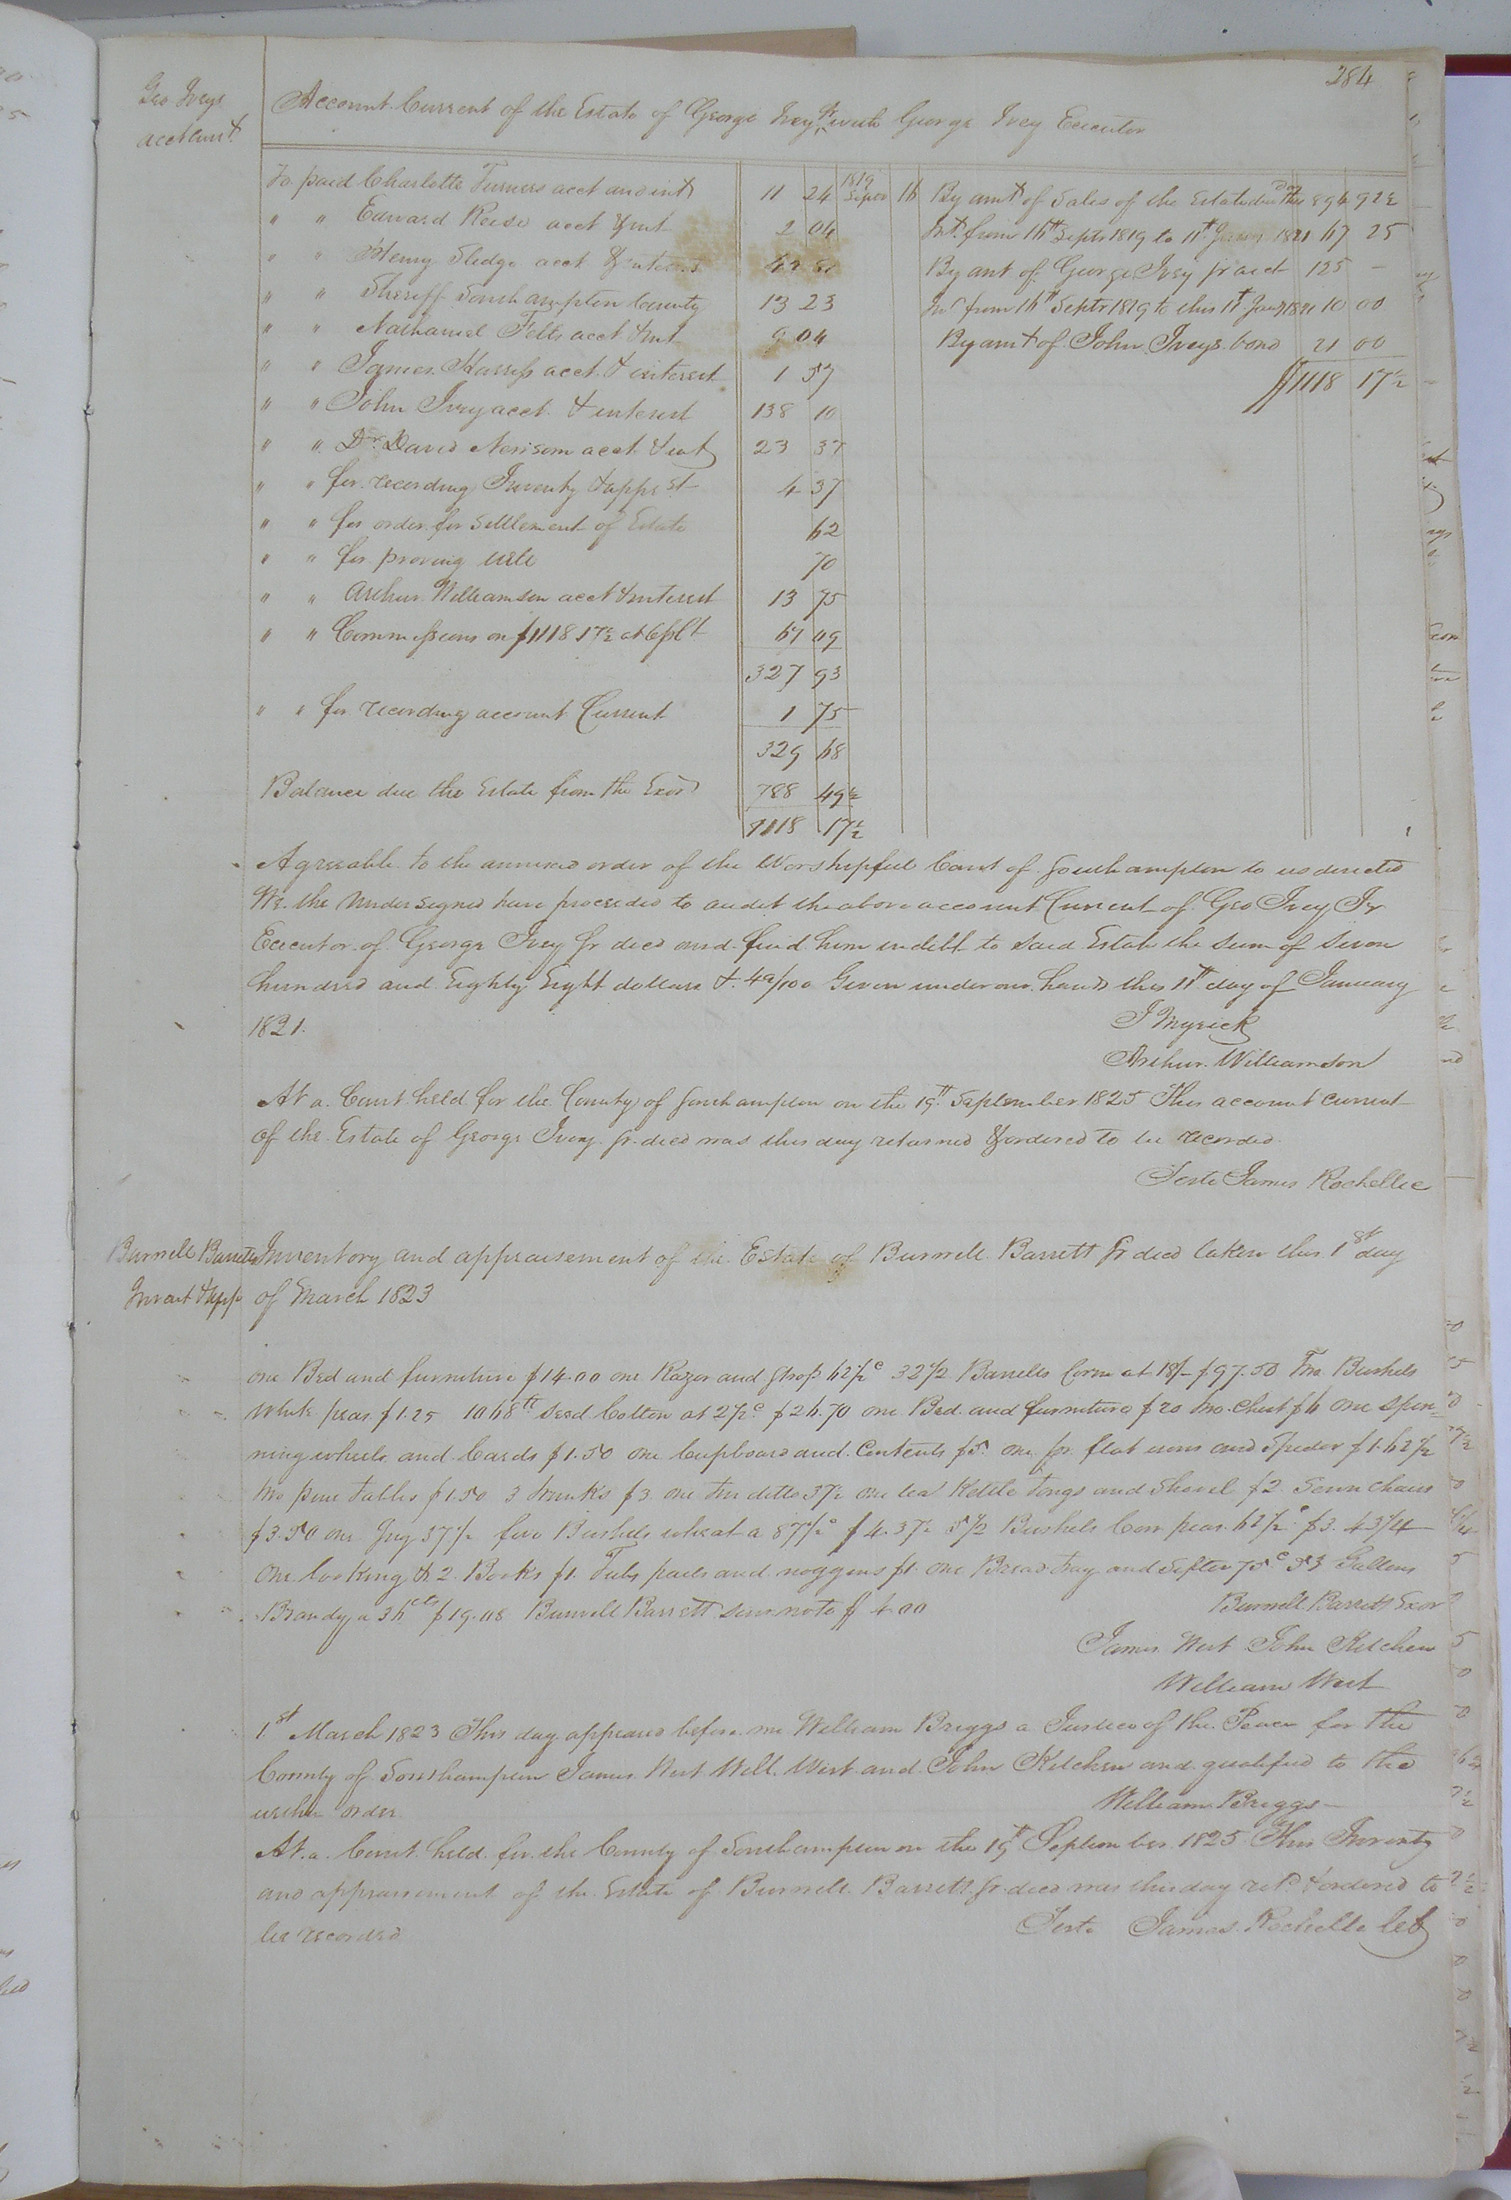 284
Geo Iveys
acct Curt.
Account Current of the Estate of George Ivey Sr with George Ivey Executor
To paid Charlotte Turners acct and int 11 24
" " Edward Reese acct & int 2 04
" " Henry Sledge acct & interest
" " Sheriff Southampton County 13 23
" " Nathaniel Felts acct & int 9 04
" " James Harriss acct & interest 1 57
" " John Ivey acct & interest 138 10
" " Dr. David Newsom acct & int 23 37
" " for recording Inventy & apprst 4 37
" " for order for settlement of Estate 62
" " for proving will 70
" " Arthur Williamson acct & interest 13 75
" " Commissions on $1118 17½ at 6 p Ct 67 09
327 93
" " for recording account Current 1 75
329 68
Balance due the Estate from the Exor 788 49½
1118 17½
1819 Septr 16 By amt of Sales of the Estate due this 894 92½
Int from 16th Septr 1819 to 11th Jany 1821 67 25
By amt of George Ivey jr acct 125 -
Int from 16th Septr 1819 to this 11th Jany 1821 10 00
By amt of John Iveys bond 21 00
$1118 17½
Agreeable to the annexed order of the Worshipful Court of Southampton to us directed
We the undersigned have proceeded to audit the above account Current of Geo Ivey Jr
Executor of George Ivey Sr decd and find him indebt to said Estate the sum of Seven
hundred and Eighty Eight dollars & 49/100 Given under our hands this 11th day of January
1821.
J Myrick
Arthur Williamson
At a Court held for the County of Southampton on the 19th September 1825 This account current
of the Estate of George Ivey Sr. decd was this day returned & ordered to be recorded
Teste James Rochelle
Burnell Barretts
Invent & app
Inventory and appraisement of the Estate of Burwell Barrett Sr decd taken this 1st day
of March 1823
one Bed and furniture $14.00 one Razor and Strop 62½c 32½ Barrells Corn at 18/- $97.50 Two Bushels
white peas $1.25 1068 lbs seed Cotton at 2½c $26.70 one Bed and furniture $20 two Chest $6 one spin=
ning wheels and Cards $1.50 one Cupboard and Contents $5 one pr flat irons and Spider $1.62½
two pine tables $1.50 3 trunks $3 one tin ditto 37½ one tea Kettle tongs and Shovel $2 Seven chairs
$3.50 one Jug 37½ five Bushels wheat a 87½c $4.37½ 5½ Bushels Corn peas 62½c $3.43¼
One looking & 2 Books $1. Tubs pails and noggens $1. one Bread tray and Sifter 75c 53 Gallons
Brandy a 36 cts $19.08 Burwell Barrett senr note $ 4.00
Burnell Barrett Exor
James West John Kitchen
William West
1st March 1823 This day appeared before me William Briggs a Justice of the Peace for the
County of Southampton James West Will. West and John Kitchen and qualified to the
within order
William Briggs
At a Court held for the County of Southampton on the 19th September 1825 This Inventy
and appraisement of the Estate of Burwell Barrett Sr decd was this day retd & ordered to
be recorded
Teste James Rochelle Clk